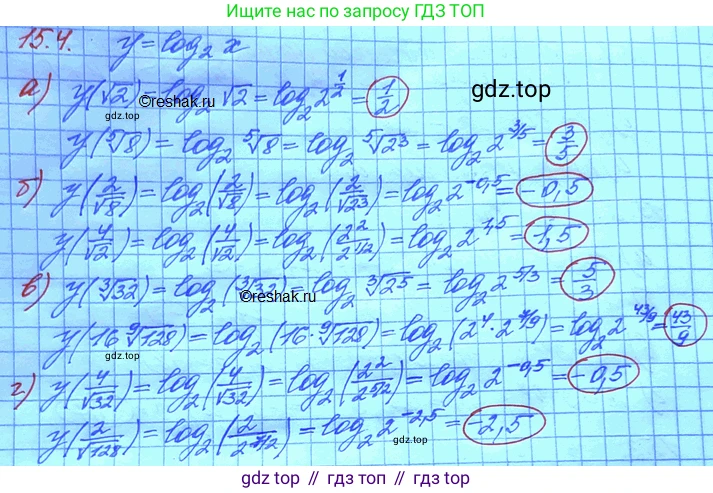 Ищите нас по запросу ГДЗ ТОП
15.4. y = log₂ x
а) y(√2) = log₂ √2 = log₂ 2^(1/2) = 1/2
gdz.top
©reshak.ru
y(⁵√8) = log₂ ⁵√8 = log₂ ⁵√2³ = log₂ 2^(3/5) = 3/5
б) y(2/√8) = log₂(2/√8) = log₂(2/√2³) = log₂ 2^(-0,5) = -0,5
y(4/√2) = log₂(4/√2) = log₂(2²/2^(1/2)) = log₂ 2^(1,5) = 1,5
в) y(³√32) = log₂(³√32) = log₂ ³√2⁵ = log₂ 2^(5/3) = 5/3
©reshak.ru
y(16 ⁹√128) = log₂(16·⁹√128) = log₂(2⁴·2^(7/9)) = log₂ 2^(43/9) = 43/9
г) y(4/√32) = log₂(4/√32) = log₂(2²/2^(5/2)) = log₂ 2^(-0,5) = -0,5
y(2/√128) = log₂(2/2^(7/2)) = log₂ 2^(-2,5) = -2,5
gdz.top // gdz.top // gdz.top